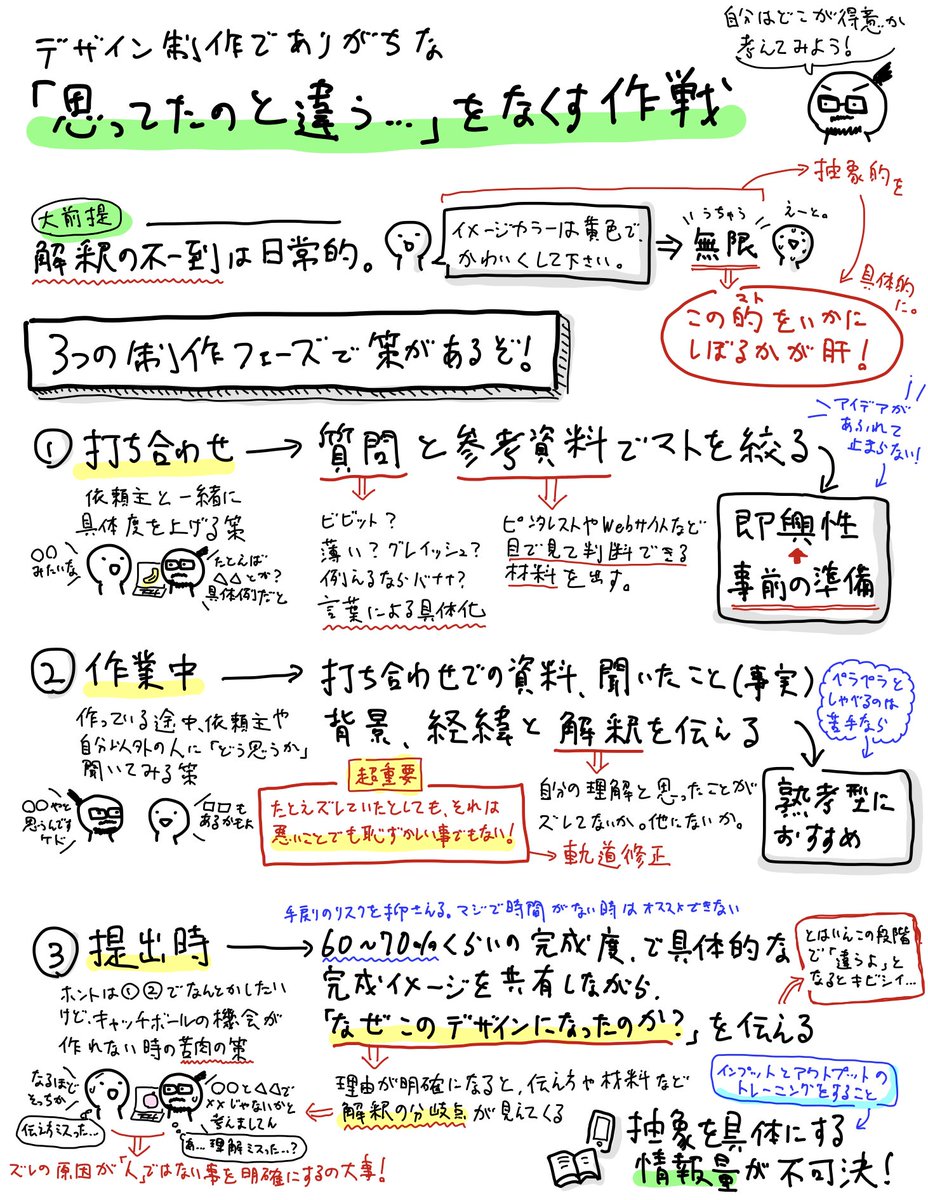 デザイン制作でありがちな
「思ってたのと違う…」をなくす作戦
自分はどこが得意か
考えてみよう!
大前提
解釈の不一到は日常的。
イメージカラーは黄色で、
かわいくして下さい。
うちゅう
無限
えーと。
抽象的を
具体的に。
この的をいかに
マト
しぼるかが肝!
3つの制作フェーズで策があるぞ!
① 打ち合わせ → 質問と参考資料でマストを絞る
アイデアが
あふれて
止まらない!
依頼主と一緒に
具体度を上げる策
〇〇
みたいな
たとえば
△△とか?
具体例だと
ビビット?
薄い?グレイッシュ?
例えるならバナナ?
言葉による具体化
ピンタレストやWebサイトなど
目で見て判断できる
材料を出す。
即興性
事前の準備
② 作業中 → 打ち合わせでの資料、聞いたこと(事実)
背景、経緯と解釈を伝える
ペラペラと
しゃべるのは
苦手なら
作っている途中、依頼主や
自分以外の人に「どう思うか」
聞いてみる策
〇〇やと
思うんです
ケド
□□も
あるかもよ
超重要
たとえズレていたとしても、それは
悪いことでも恥ずかしい事でもない!
自分の理解と思ったことが
ズレてないか。他にないか。
軌道修正
熟考型に
おすすめ
手戻りのリスクを抑さえる。マジで時間がない時はオススメできない
③ 提出時 → 60~70%くらいの完成度、で具体的な
完成イメージを共有しながら、
「なぜこのデザインになったのか?」を伝える
とはいえこの段階
で「違うよ」と
なるとキビシイ…
ホントは①②でなんとかしたい
けど、キャッチボールの機会が
作れない時の苦肉の策
なるほど
そっちか
伝え方ミスった…
〇〇と△△で
××じゃないかと
考えましてん
あ…理解ミスった…?
理由が明確になると、伝え方や材料など
解釈の分岐点が見えてくる
ズレの原因が「人」ではない事を明確にするの大事!
インプットとアウトプットの
トレーニングをすること
抽象を具体にする
情報量が不可決!